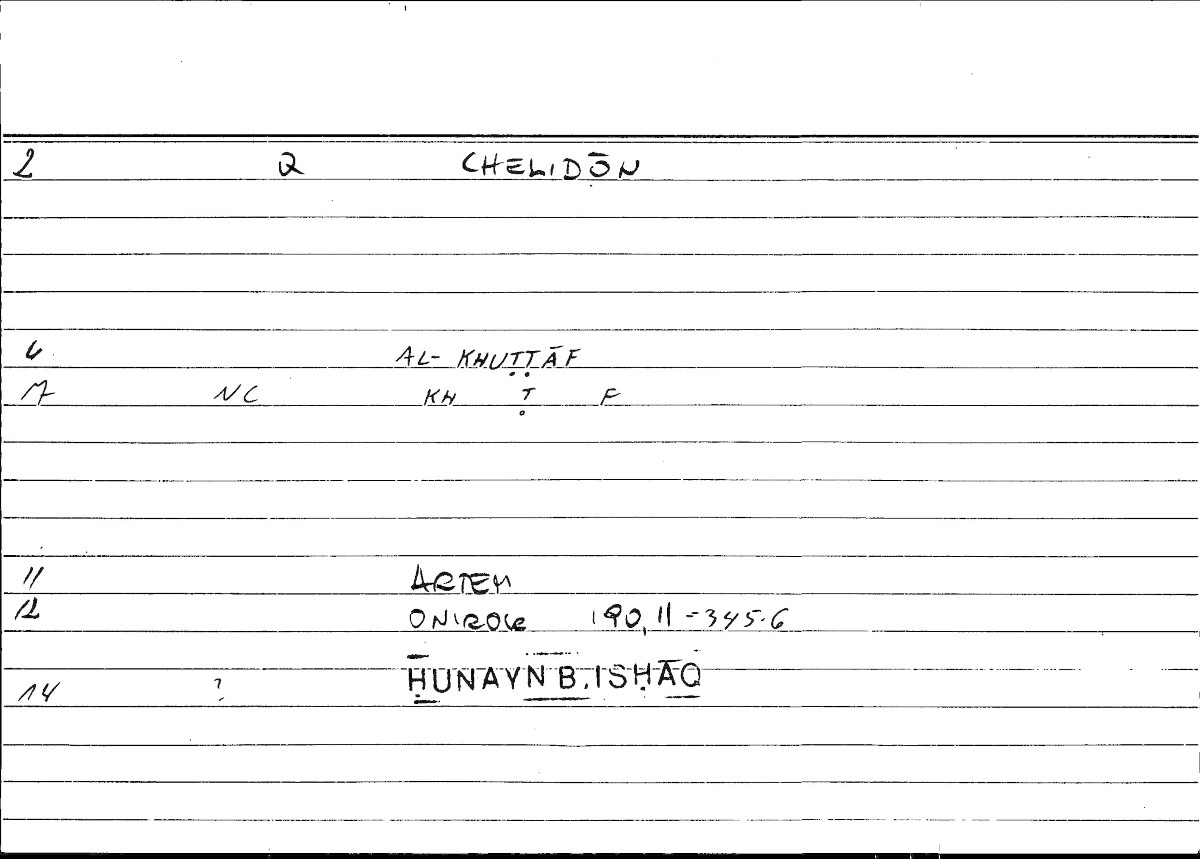 2 Q CHELIDŌN
6 AL-KHUṬṬĀF
7 NC KH Ṭ F
11 ARTEM
12 ONIROCR 190,11-345.6
14 ? ḤUNAYN B. ISḤĀQ